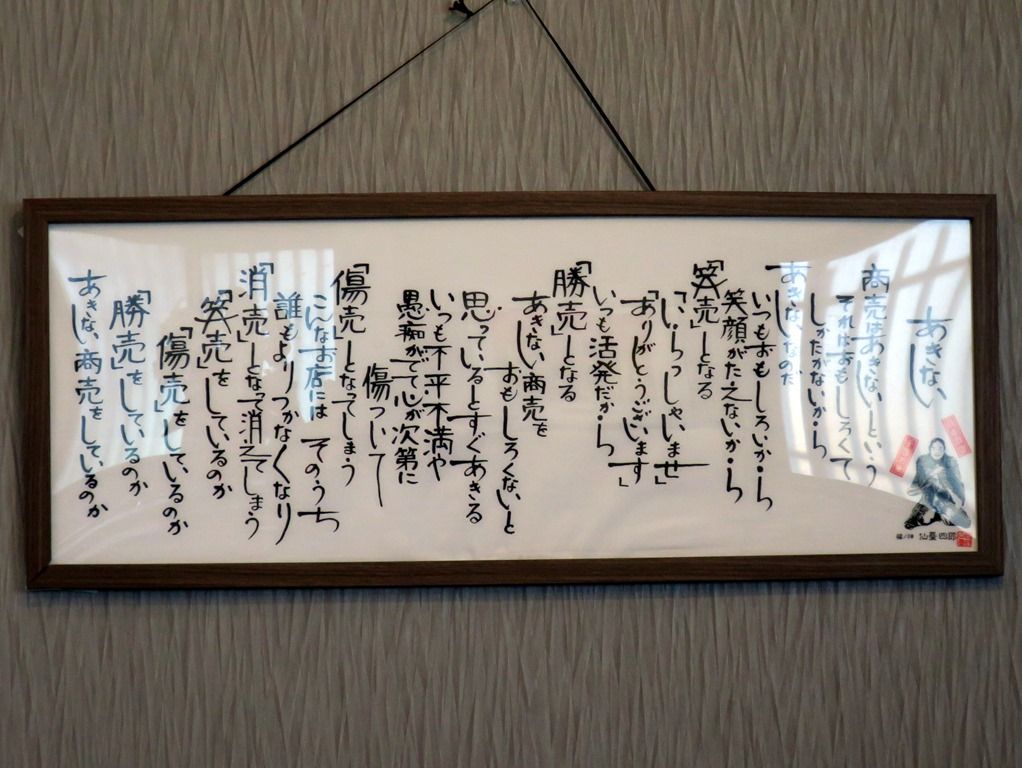 あきない
商売はあきないという
それはおもしろくて
しかたがないから
あきないなのだ
いつもおもしろいから
笑顔がたえないから
「笑売」となる
「いらっしゃいませ」
「ありがとうございます」
いつも活発だから
「勝売」となる
あきない商売を
おもしろくないと
思っているとすぐあきる
いつも不平不満や
愚痴がでて心が次第に
傷ついて
「傷売」となってしまう
こんなお店には そのうち
誰もよりつかなくなり
「消売」となって消えてしまう
「笑売」をしているのか
「傷売」をしているのか
「勝売」をしているのか
あきない商売をしているのか
仙臺四郎